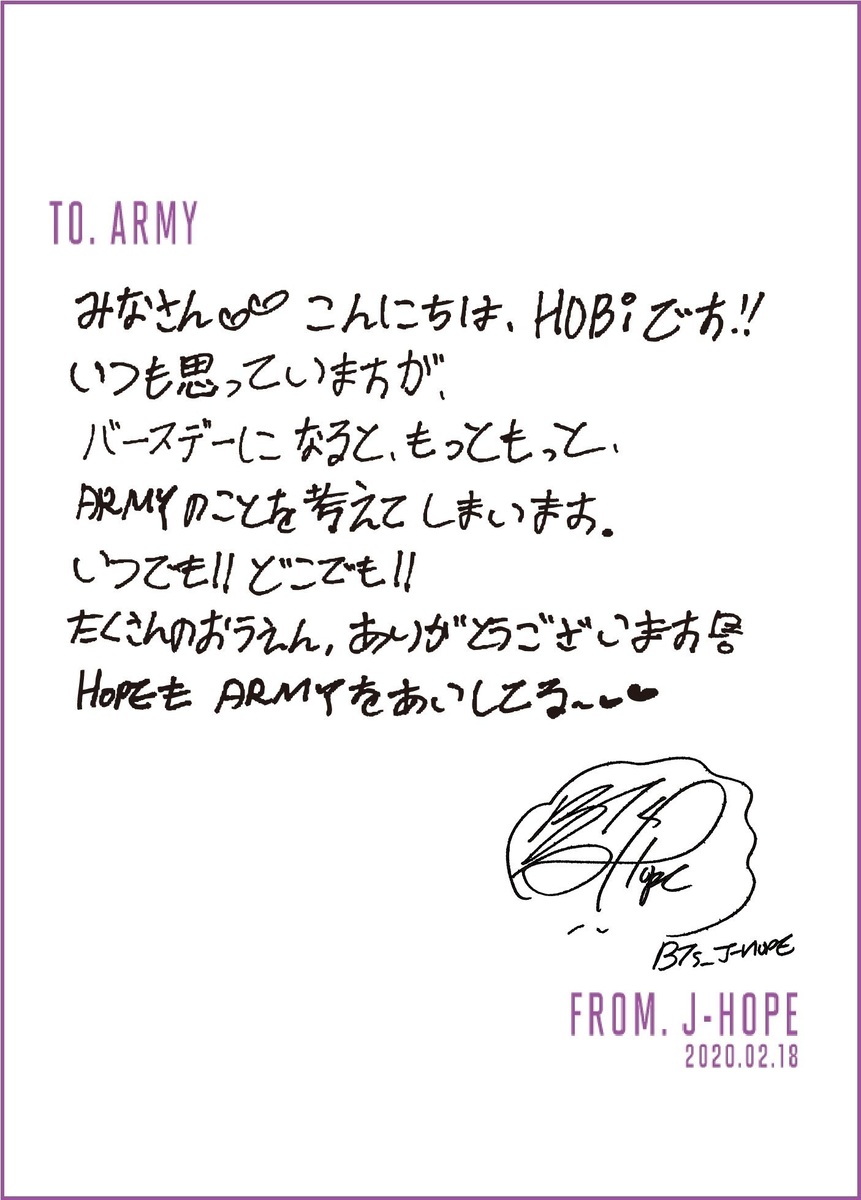 TO. ARMY
みなさん♡♡ こんにちは、HOBiです!!
いつも思っていますが、
バースデーに なると、もっともっと、
ARMYのことを考えてしまいます。
いつでも!! どこでも!!
たくさんのおうえん, ありがとうございます
HOPEも ARMYをあいしてる~♥♥
BTS
Hope
BTs_J-HOPE
FROM. J-HOPE
2020.02.18